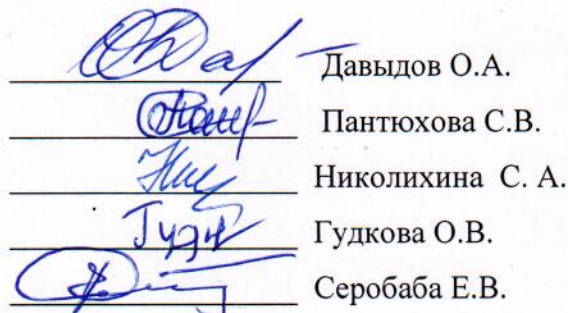 Давыдов О.А.
Пантюхова С.В.
Николихина С. А.
Гудкова О.В.
Серобаба Е.В.